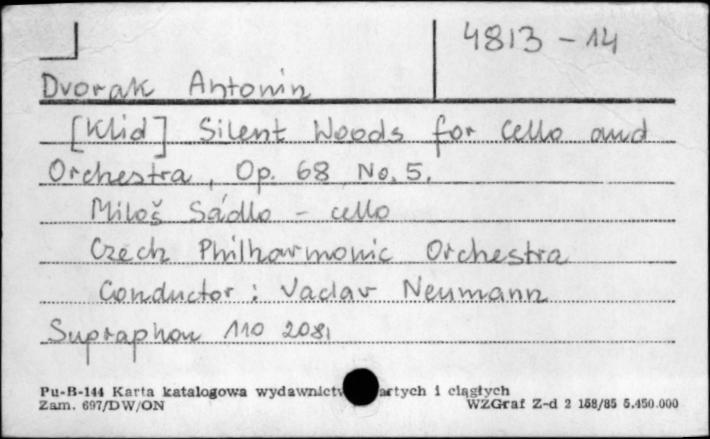 4813 - 14
Dvorak Antonin
[Klid] Silent Woods for Cello and
Orchestra, Op. 68 No. 5.
Miloš Sádlo - cello
Czech Philharmonic Orchestra
Conductor: Vaclav Neumann
Supraphon 110 2081
Pu-B-144 Karta katalogowa i ciągłych
Zam. 697/DW/ON WZGraf Z-d 2 158/85 5.450.000